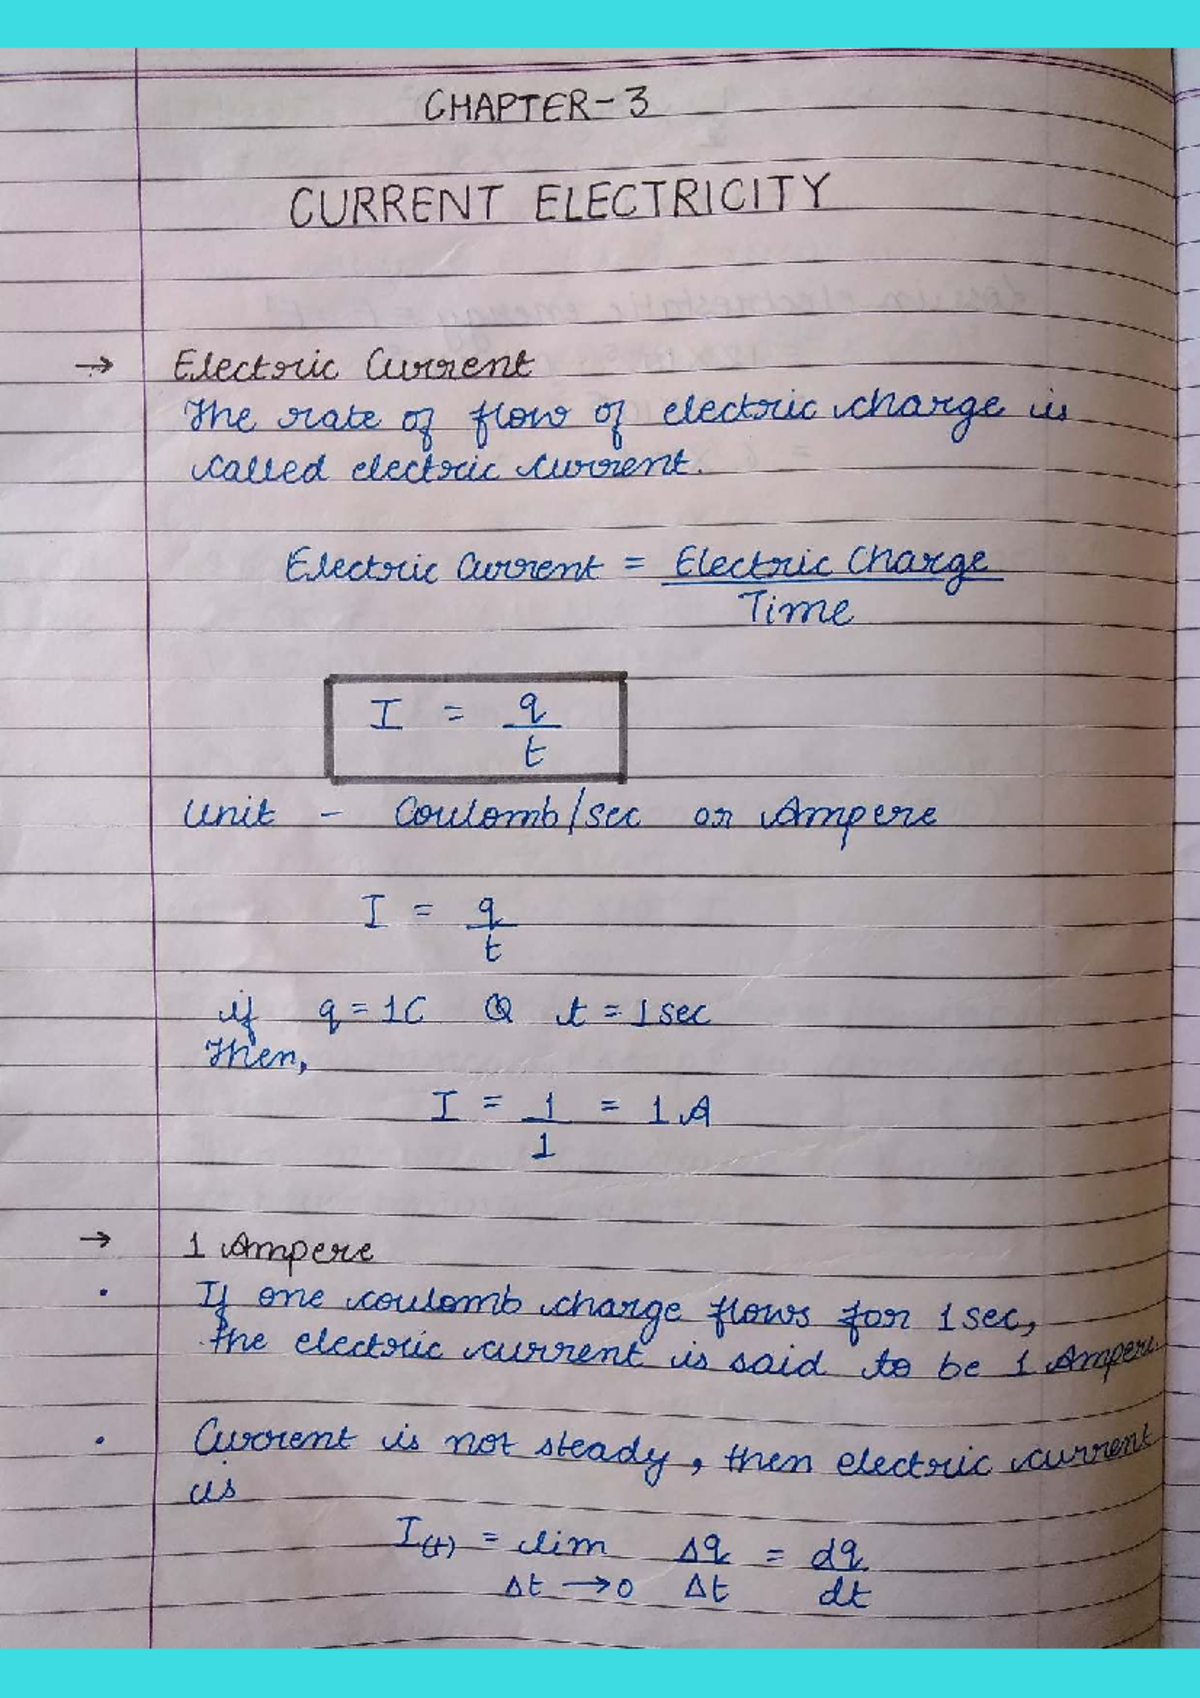 CHAPTER-3
CURRENT ELECTRICITY
→ Electric Current
The rate of flow of electric charge is
called electric current.
Electric Current = Electric Charge
Time
I = q
t
Unit - Coulomb/sec or Ampere
I = q
t
if q = 1C & t = 1 sec
Then,
I = 1 = 1A
1
→ 1 Ampere
• If one coulomb charge flows for 1 sec,
the electric current is said to be 1 Ampere.
• Current is not steady, then electric current
is
I(t) = lim Δq = dq
Δt → 0 Δt dt